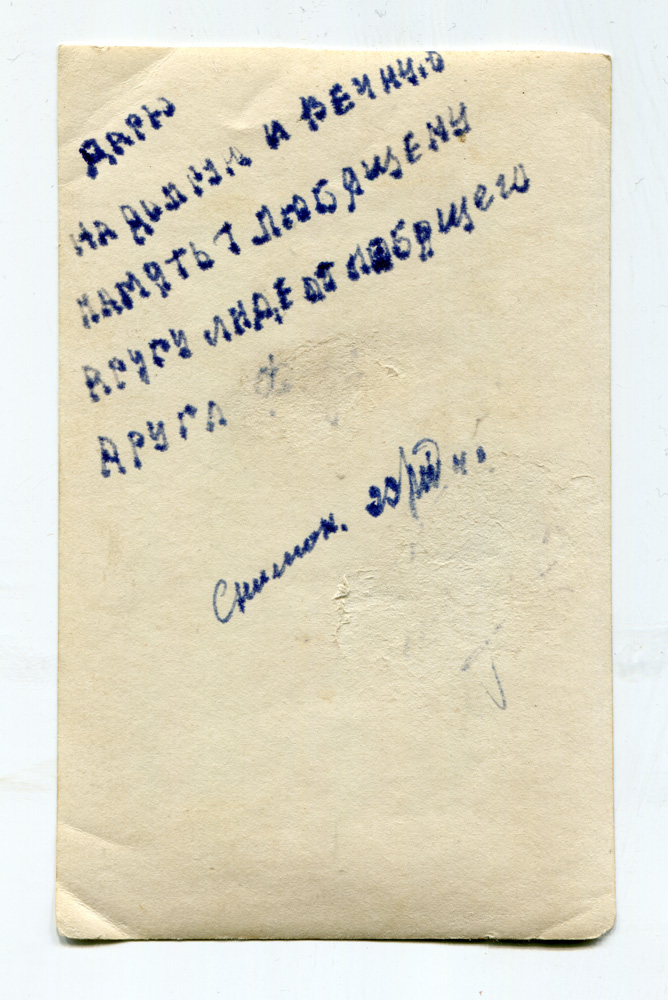 ДАРЮ
НА ДОЛГУЮ И ВЕЧНУЮ
ПАМЯТЬ ЛЮБЯЩЕМУ
ДРУГУ ЛИДЕ ОТ ЛЮБЯЩЕГО
ДРУГА
Снимок.